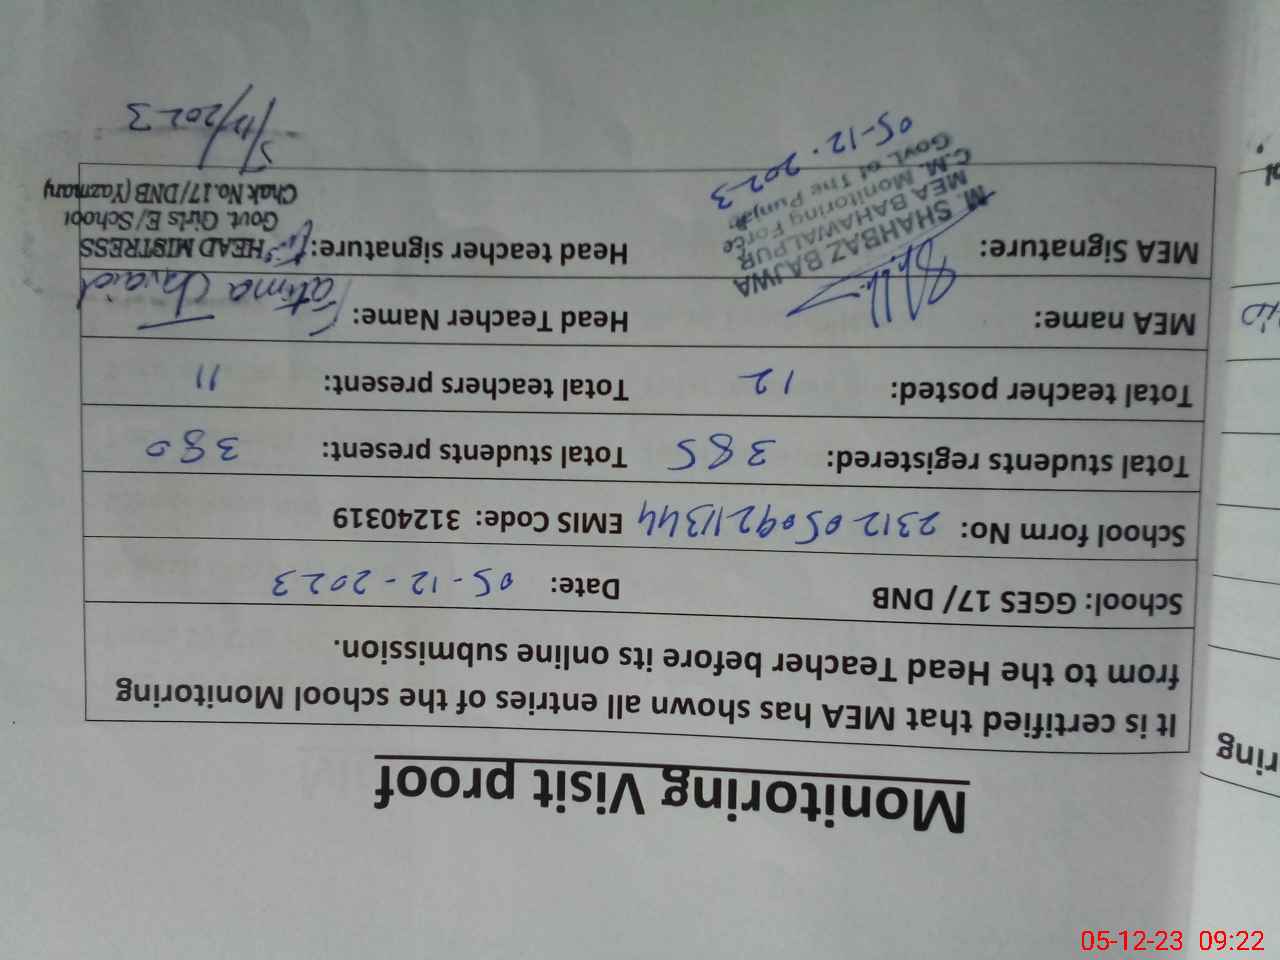 Monitoring Visit proof
It is certified that MEA has shown all entries of the school Monitoring
from to the Head Teacher before its online submission.
School: GGES 17/ DNB Date: 05-12-2023
School form No: 23120509211344 EMIS Code: 31240319
Total students registered: 385 Total students present: 380
Total teacher posted: 12 Total teachers present: 11
MEA name: Head Teacher Name: Fatima Javaid
MEA Signature: Head teacher signature: HEAD MISTRESS
Govt. Girls E/School
Chak No.17/DNB (Yazman)
M. SHAHBAZ BAJWA
MEA BAHAWALPUR
C.M. Monitoring Force
Govt. of The Punjab
05-12-2023
5/12/2023
ring
05-12-23 09:22